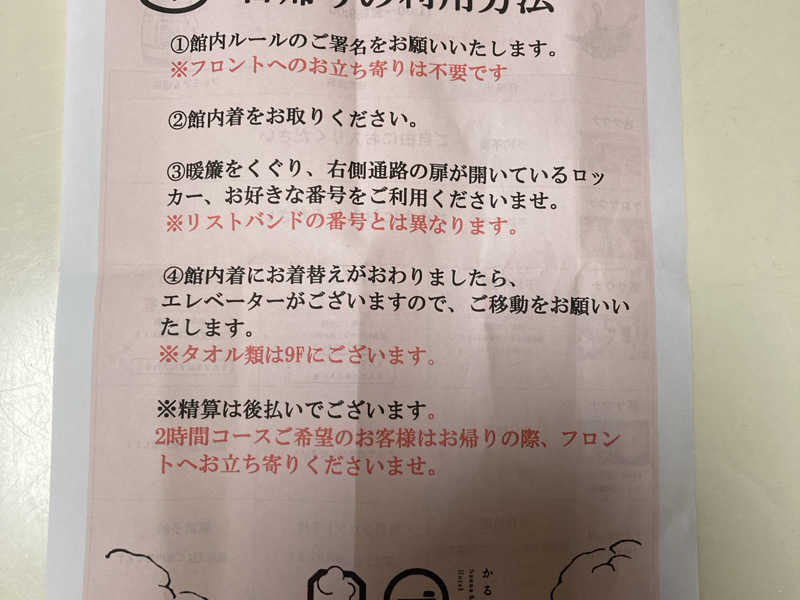 日帰りの利用方法
①館内ルールのご署名をお願いいたします。
※フロントへのお立ち寄りは不要です
②館内着をお取りください。
③暖簾をくぐり、右側通路の扉が開いているロッ
カー、お好きな番号をご利用くださいませ。
※リストバンドの番号とは異なります。
④館内着にお着替えがおわりましたら、
エレベーターがございますので、ご移動をお願いい
たします。
※タオル類は9Fにございます。
※精算は後払いでございます。
2時間コースご希望のお客様はお帰りの際、フロン
トへお立ち寄りくださいませ。
かる
Sauna &
Hotel